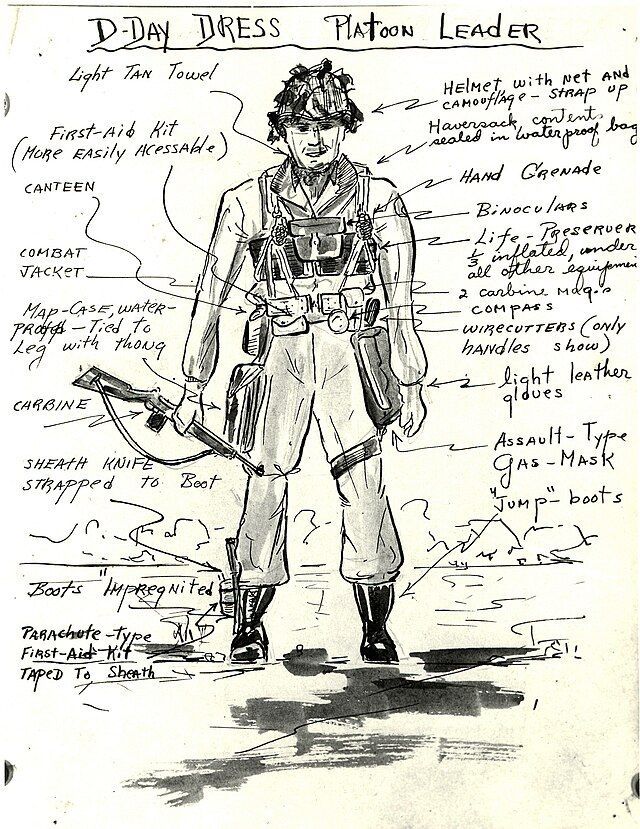 D-DAY DRESS PLATOON LEADER
Light TAN Towel
FIRST-AID KIT
(MORE EASILY ACESSABLE)
CANTEEN
COMBAT
JACKET
MAP-CASE, WATER-
PROOF - Tied to
Leg with thong
CARBINE
SHEATH KNIFE
STRAPPED to Boot
Boots "IMPREGNITED
PARACHUTE-TYPE
FIRST-AID KIT
TAPED TO Sheath
HELMET, with NET AND
CAMOUFLAGE - STRAP UP
Haversack, contents
sealed in waterproof bag
HAND GRENADE
BINOCULARS
Life-PRESERVER
1/3 inflated, under
all other equipmen
2 carbine mag.s
COMPASS
WIRECUTTERS (only
handles show)
light leather
gloves
ASSAULT-TYPE
GAS-MASK
"JUMP"-boots